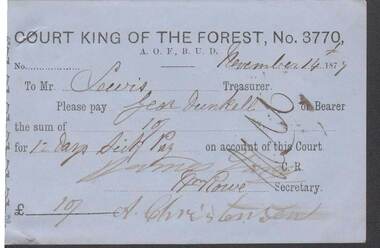 COURT KING OF THE FOREST, No. 3770,
A. O. F., B. U. D.
No. November 14 1877
To Mr Lewis Treasurer.
Please pay or Bearer
the sum of 10/
for 12 days Sick Pay on account of this Court
C. R.
Wm Rowe Secretary.
£ 10/ A. Christensen